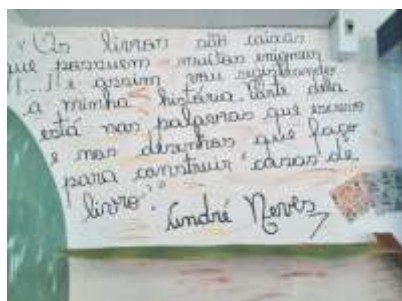 "Os livros são caixas
que possuem muitos enigmas
[...] e assim vou registrando
a minha história. Parte dela
está nas palavras que escrevo
e nos desenhos que faço
para construir casas de
livro." André Neves